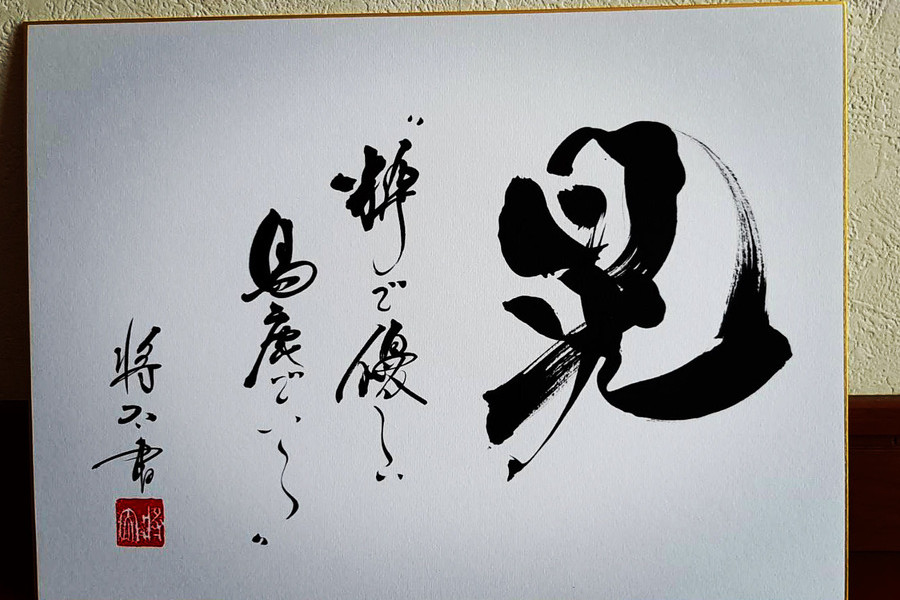 晃
"粋で優しい
馬鹿でいろ"
将大書